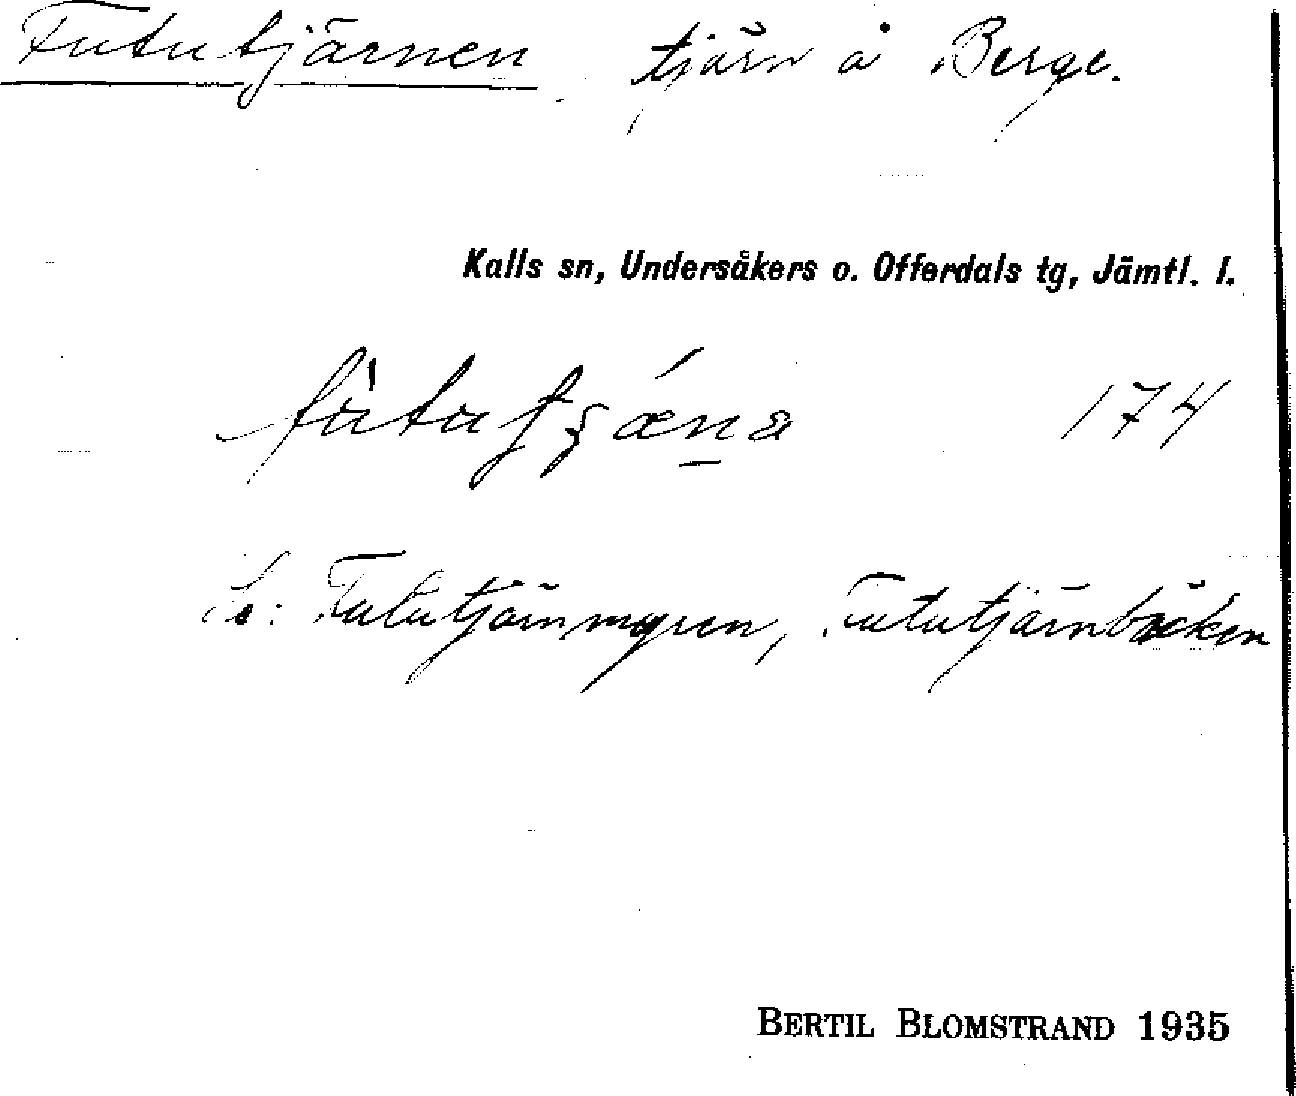 Fututjärnen tjärn å Berge.
Kalls sn, Undersåkers o. Offerdals tg, Jämtl. l.
174
Fututjärnmyren, Fututjärnbäcken
BERTIL BLOMSTRAND 1935